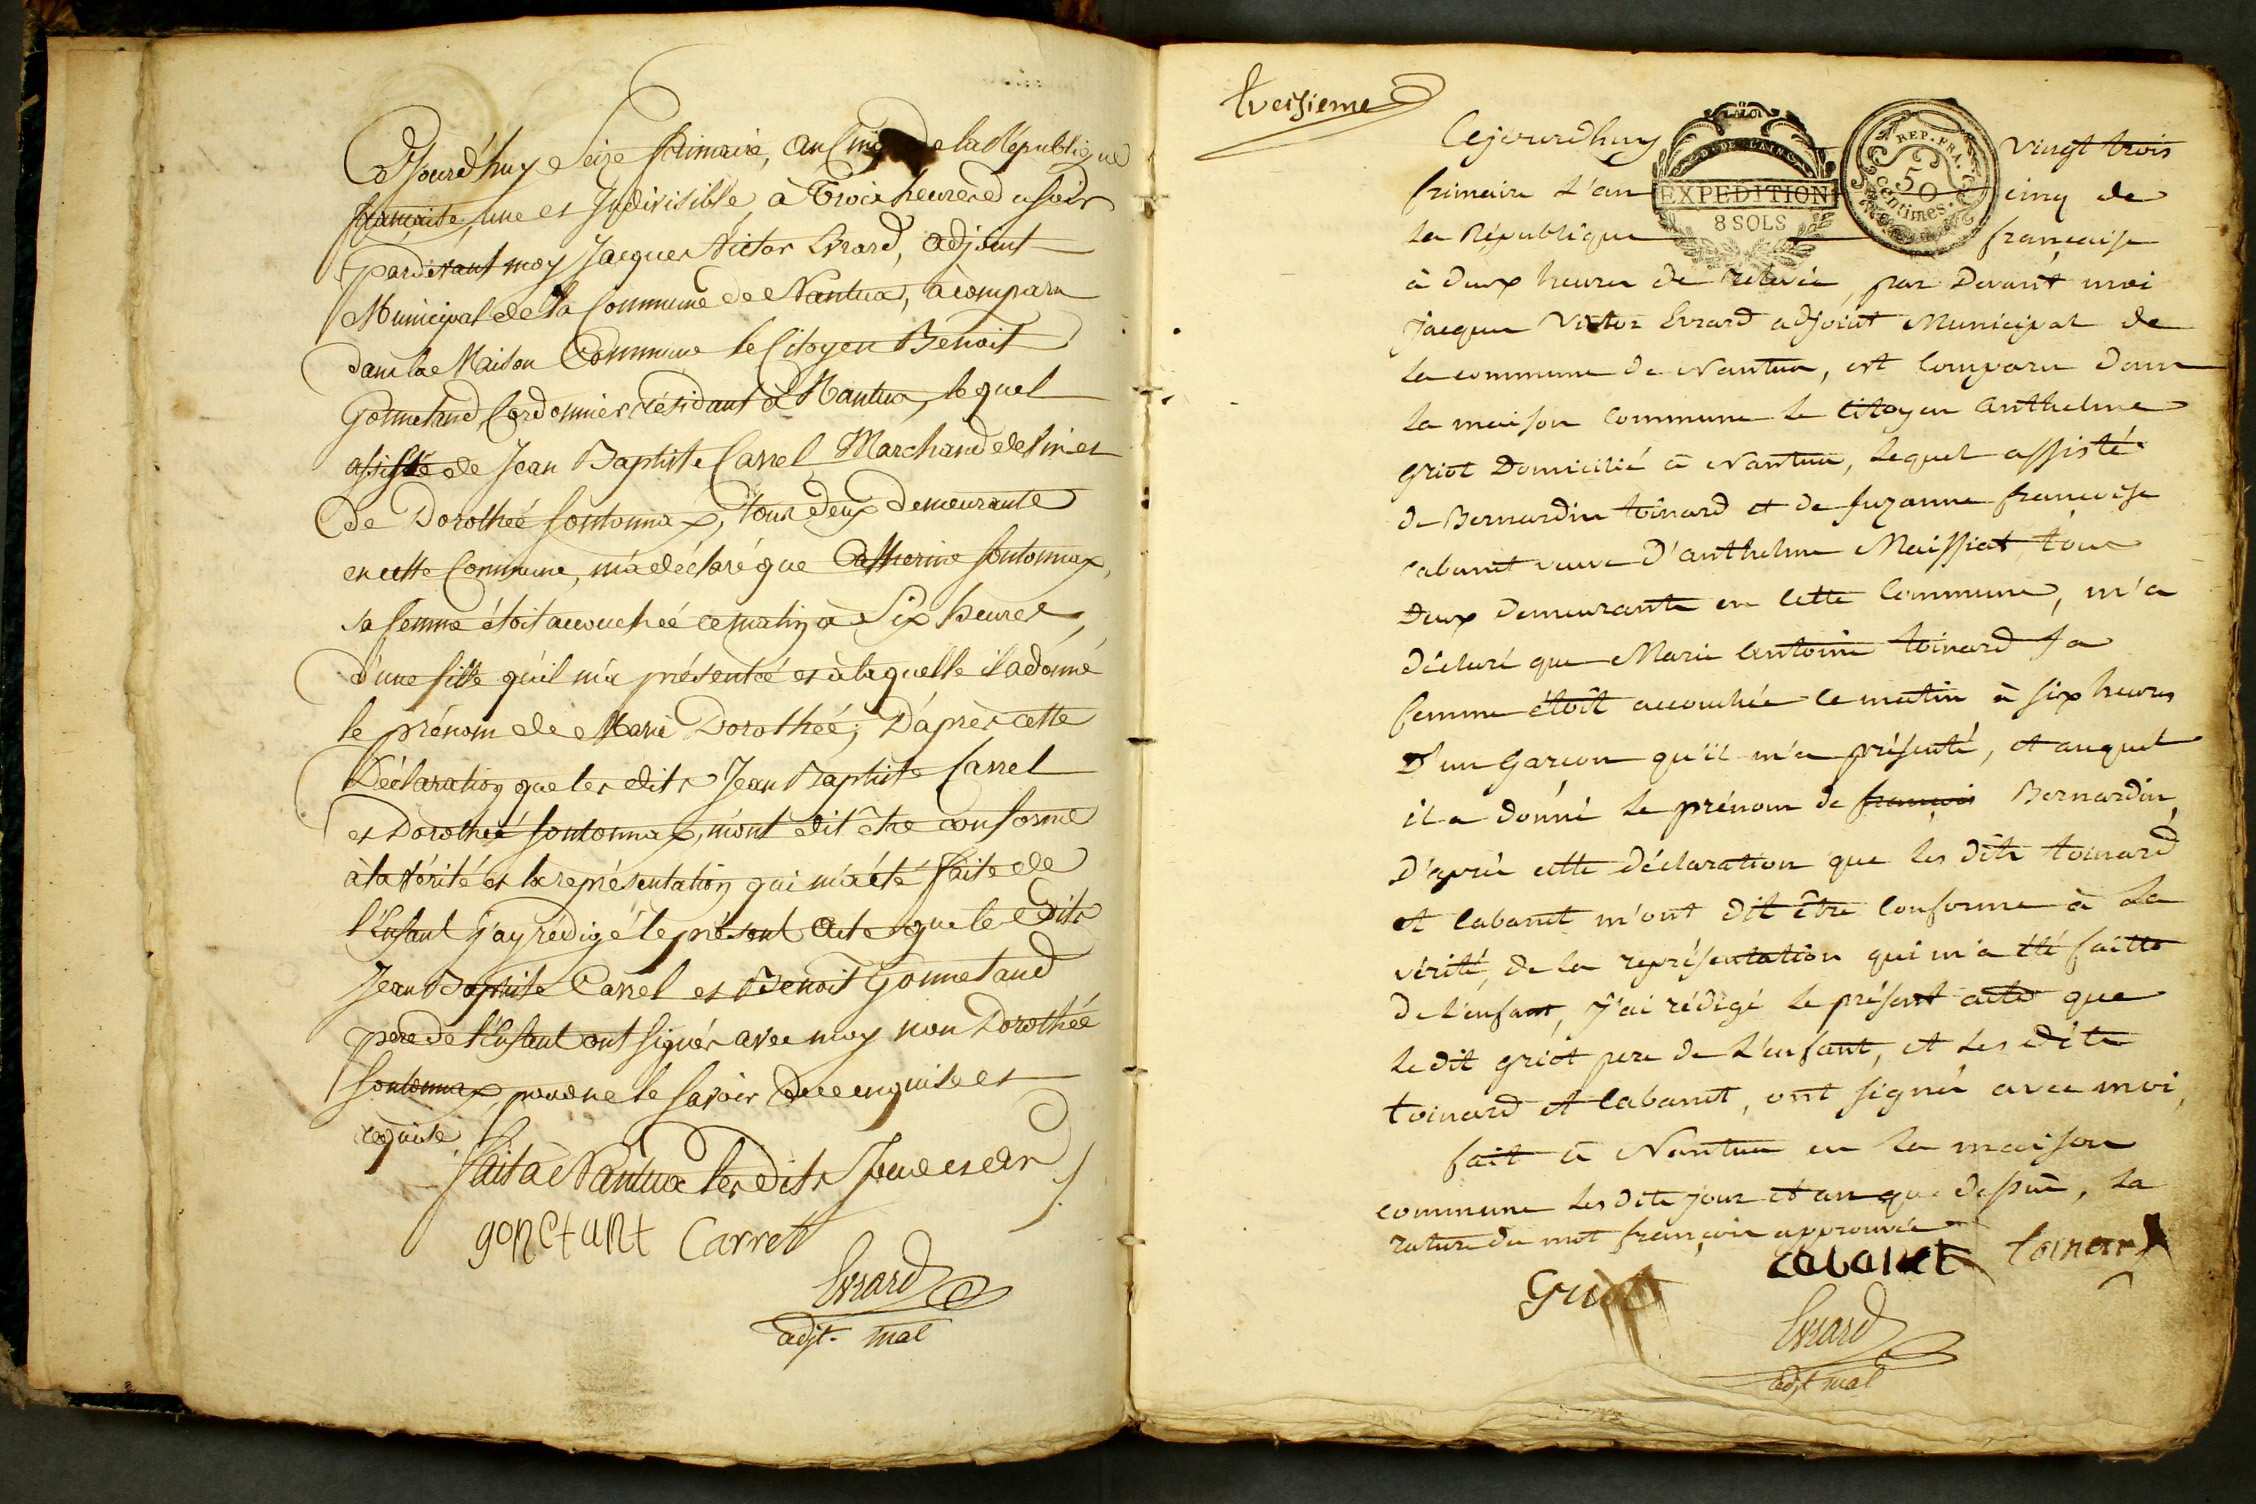 Cejourd'huy Seize frimaire, an Cinq de la République
française, une et Indivisible, à Trois heures du soir
pardevant moy Jacques Victor Evrard, adjoint
Municipal de la Commune de Nantua, à comparu
dans la Maison Commune le Citoyen Benoit
Gonnetand Cordonnier résidant à Nantua, lequel
assisté de Jean Baptiste Carrel Marchand de vin et
de Dorothée fontonnax, tous deux demeurants
en cette Commune, m'a déclaré que Catherine fontonnax,
sa femme étoit accouchée ce matin à Six heures,
d'une fille qu'il m'a présentée et à laquelle il a donné
le prénom de Marie Dorothée; D'après cette
Déclaration que les dits Jean Baptiste Carrel
et Dorothée fontonnax, m'ont dit être conforme
à la vérité et la représentation qui m'a été faite de
l'Enfant j'ay rédigé le présent Acte que le dits
Jean Baptiste Carrel et Benoit Gonnetand
pere de l'Enfant ont signés avec moy non Dorothée
fontonnax, pour ne le savoir de ce enquise et
requise
fait à Nantua les dits Jour et an
gonctant Carret
Evrard
adjt. mal
treisieme
Cejourdhuy vingt trois
LA LOI
REP. FRA.
50
centimes
EXPEDITION
8 SOLS
frimaire L'an cinq de
La République française
à deux heures de relevée, par devant moi
Jacques Victor Evrard adjoint Municipal de
La commune de Nantua, est Comparu dans
La maison commune Le Citoyen Anthelme
Griot Domicilié à Nantua, Lequel assisté
de Bernardin toinard et de suzanne françoise
Cabanet veuve D'anthelme Maissiat tous
Deux Demeurants en Cette Commune, m'a
Déclaré que Marie Antoine toinard sa
femme étoit accouchée ce matin à six heures
D'un Garçon qu'il m'a présenté, et auquel
il a donné Le prénom de françois Bernardin,
D'après cette Déclaration que Les dits toinard
et Cabanet m'ont dit être Conforme à La
vérité, de La représentation qui m'a été faitte
de L'enfant, J'ai rédigé Le présent acte que
Le dit griot pere de L'enfant, et Les dits
toinard et Cabanet, ont signé avec moi,
fait à Nantua en La maison
commune Les dits jour et an que dessus, La
rature du mot françois approuvée
cabanet toinard
Griot
Evrard
adjt mal